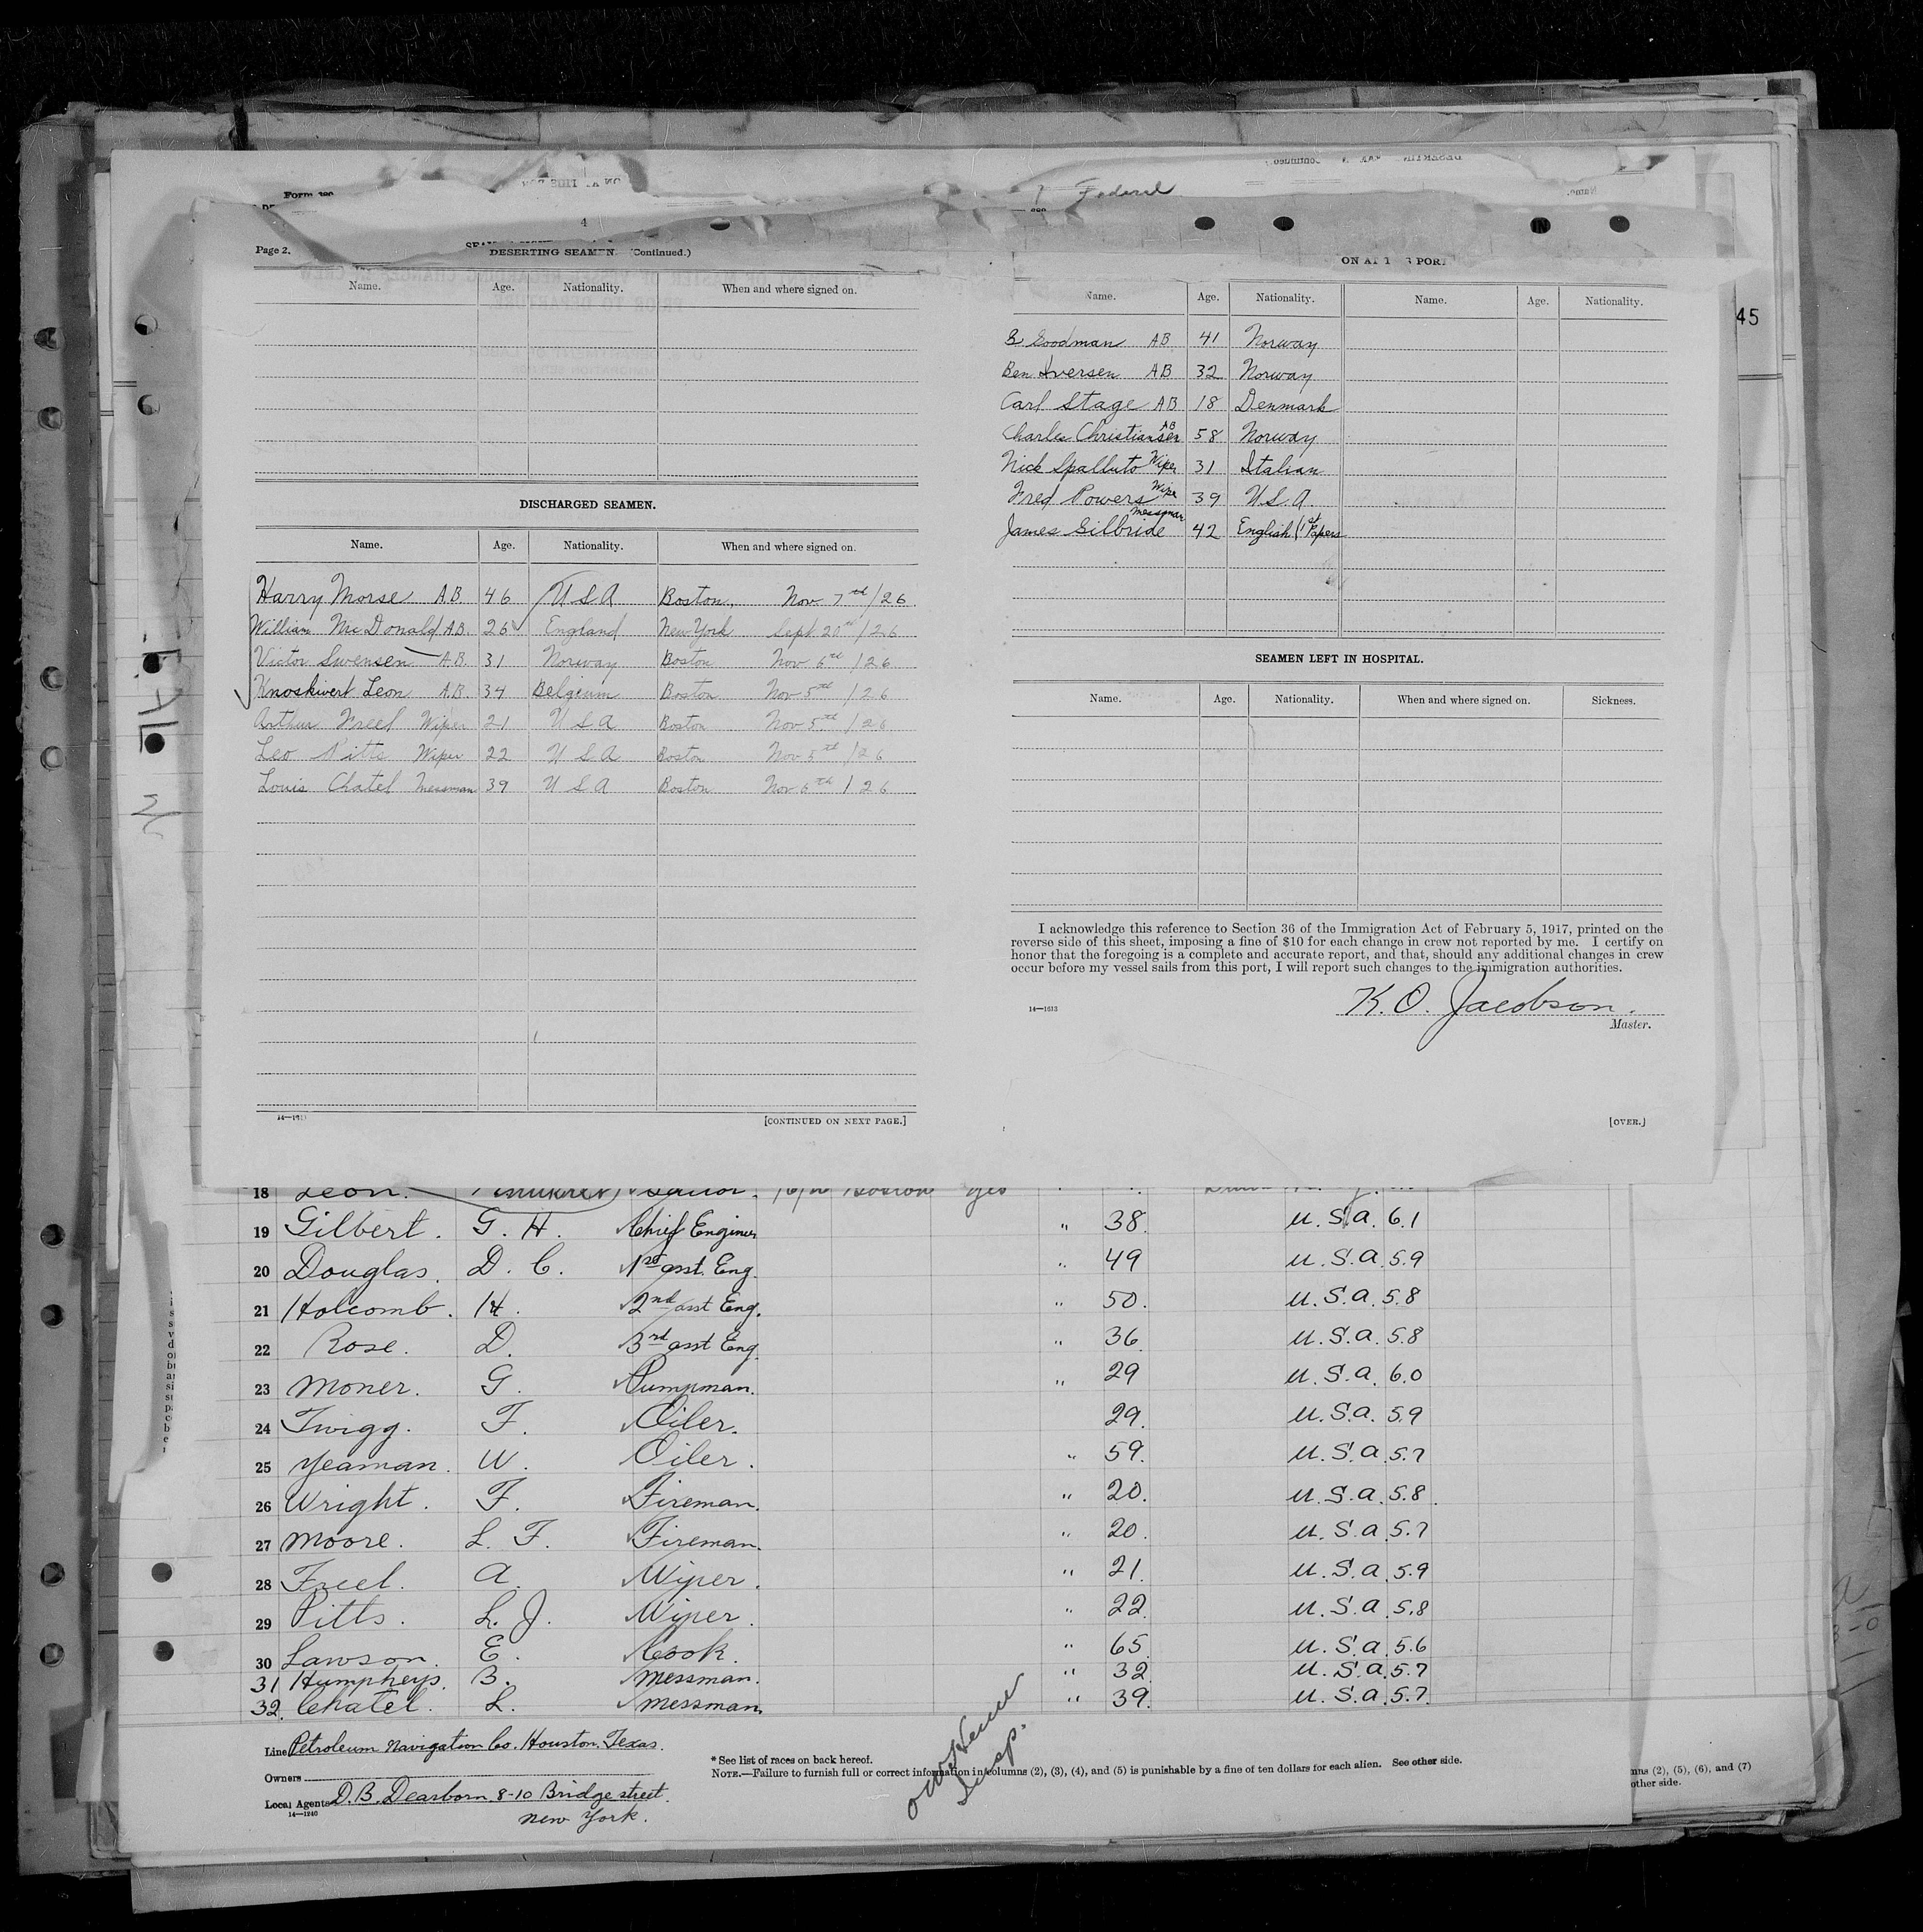 Federal
45
Page 2.
DESERTING SEAMEN. (Continued.)
Name. Age. Nationality. When and where signed on.
DISCHARGED SEAMEN.
Name. Age. Nationality. When and where signed on.
Harry Morse AB 46 U S A Boston, Nov 7th/26
William McDonald AB. 26 England New York Sept 20th/26
Victor Swensen A.B. 31 Norway Boston Nov 6th/26
Knoskivert Leon A.B. 34 Belgium Boston Nov 5th/26
Arthur Freel Wiper 21 U S A Boston Nov 5th/26
Leo Pitts Wiper 22 U S A Boston Nov 5th/26
Louis Chatel Messman 39 U S A Boston Nov 6th/26
[CONTINUED ON NEXT PAGE.]
Name. Age. Nationality. Name. Age. Nationality.
B. Goodman AB 41 Norway
Ben Iversen AB 32 Norway
Carl Stage AB 18 Denmark
Charles Christiansen AB 58 Norway
Nick Spalluto Wiper 31 Italian
Fred Powers Wiper 39 U.S.A.
James Gilbride Messman 42 English (1st Papers
SEAMEN LEFT IN HOSPITAL.
Name. Age. Nationality. When and where signed on. Sickness.
I acknowledge this reference to Section 36 of the Immigration Act of February 5, 1917, printed on the
reverse side of this sheet, imposing a fine of $10 for each change in crew not reported by me. I certify on
honor that the foregoing is a complete and accurate report, and that, should any additional changes in crew
occur before my vessel sails from this port, I will report such changes to the immigration authorities.
K. O. Jacobson.
14—1613
Master.
[OVER.]
18 Leon. Sailor. Boston yes
19 Gilbert. G. H. Chief Engineer " 38. U.S.A. 6.1
20 Douglas. D. C. 1st asst. Eng. " 49 U.S.A. 5.9
21 Holcomb. H. 2nd asst Eng. " 50. U.S.A. 5.8
22 Rose. D. 3rd asst Eng. " 36 U.S.A. 5.8
23 Moner. G. Pumpman. " 29 U.S.A. 6.0
24 Twigg. F. Oiler. 29. U.S.A. 5.9
25 Yeaman. W. Oiler. " 59. U.S.A. 5.7
26 Wright. F. Fireman. " 20. U.S.A. 5.8.
27 Moore. L. F. Fireman. " 20. U.S.A. 5.7
28 Freel. A. Wiper. " 21. U.S.A. 5.9
29 Pitts. L. J. Wiper. " 22. U.S.A. 5.8
30 Lawson. E. Cook. " 65. U.S.A. 5.6
31 Humpheys. B. Messman. " 32. U.S.A. 5.7
32. Chatel. L. Messman. " 39. U.S.A. 5.7.
Line Petroleum Navigation Co. Houston. Texas.
Owners
Local Agents D. B. Dearborn. 8-10 Bridge street.
14—1240
New York.
* See list of races on back hereof.
NOTE.—Failure to furnish full or correct information in columns (2), (3), (4), and (5) is punishable by a fine of ten dollars for each alien. See other side.
Insp.
(2), (5), (6), and (7)
other side.